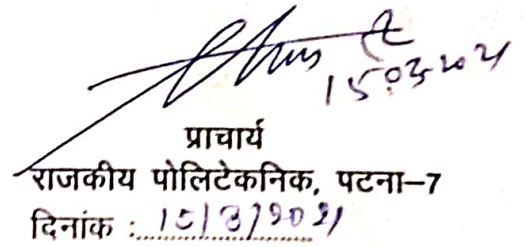 15.03.2021
प्राचार्य
राजकीय पोलिटेकनिक, पटना–7
दिनांक : 15/3/2021